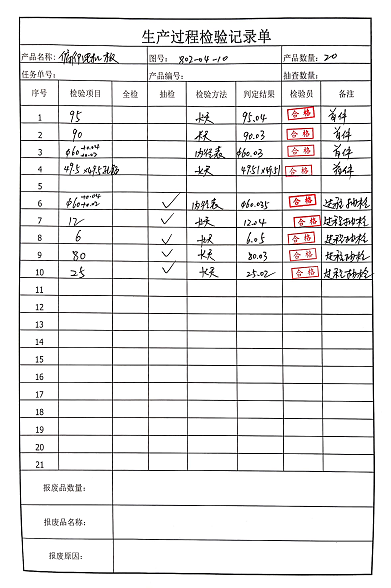 生产过程检验记录单
产品名称: 图号: 802-04-10 产品数量: 20
任务单号: 产品编号: 抽查数量:
序号 检验项目 全检 抽检 检验方法 判定结果 检验员 备注
1 95 卡尺 95.04 合格 首件
2 90 卡尺 90.03 合格 首件
3 φ60 +0.04 +0.02 内径表 φ60.03 合格 首件
4 49.5×49.5 卡尺 49.51×49.51 合格 首件
5
6 φ60 +0.04 +0.02 ✓ 内径表 φ60.035 合格 过程抽检
7 12 ✓ 卡尺 12.04 合格 过程抽检
8 6 ✓ 卡尺 6.05 合格 过程抽检
9 80 ✓ 卡尺 80.03 合格 过程抽检
10 25 ✓ 卡尺 25.02 合格 过程抽检
11
12
13
14
15
16
17
18
19
20
21
报废品数量:
报废品名称:
报废原因: